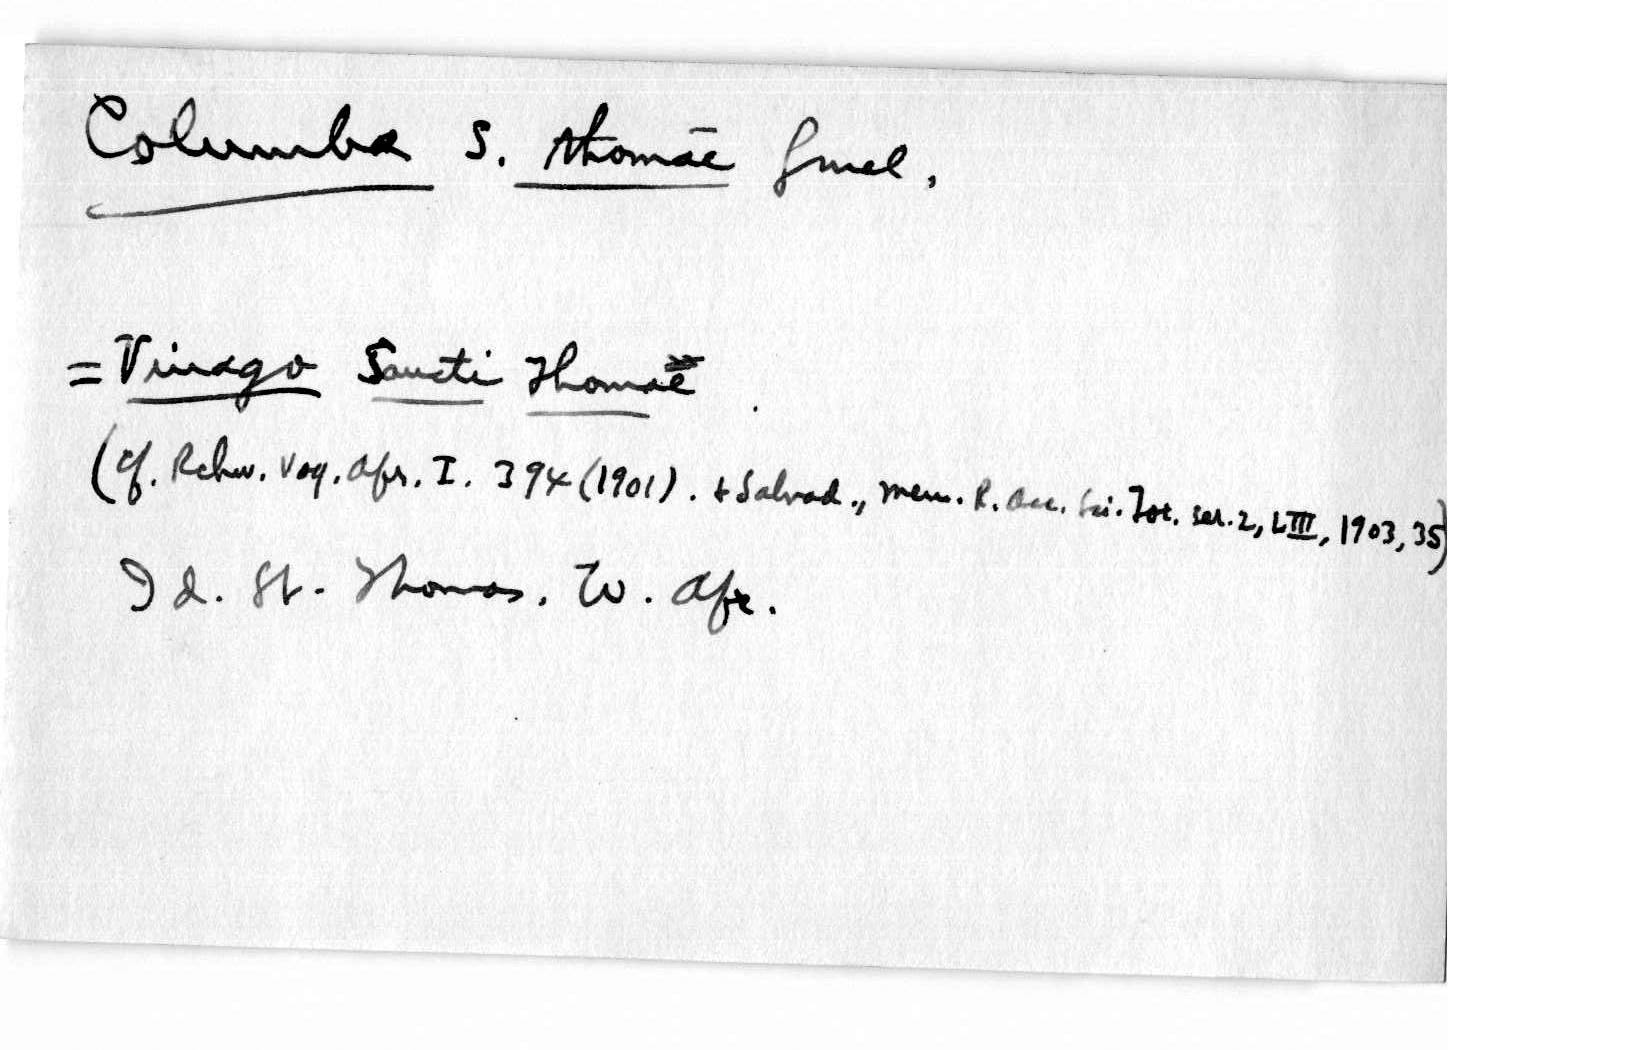 Columba S. thomae Gmel.
= Vinago Sancti Thomae
(Cf. Rchw. Vog. Afr. I. 394 (1901). & Salvad., Mem. R. Acc. Sci. Tor. ser. 2, LIII, 1903, 35)
Id. St. Thomas. W. Afr.